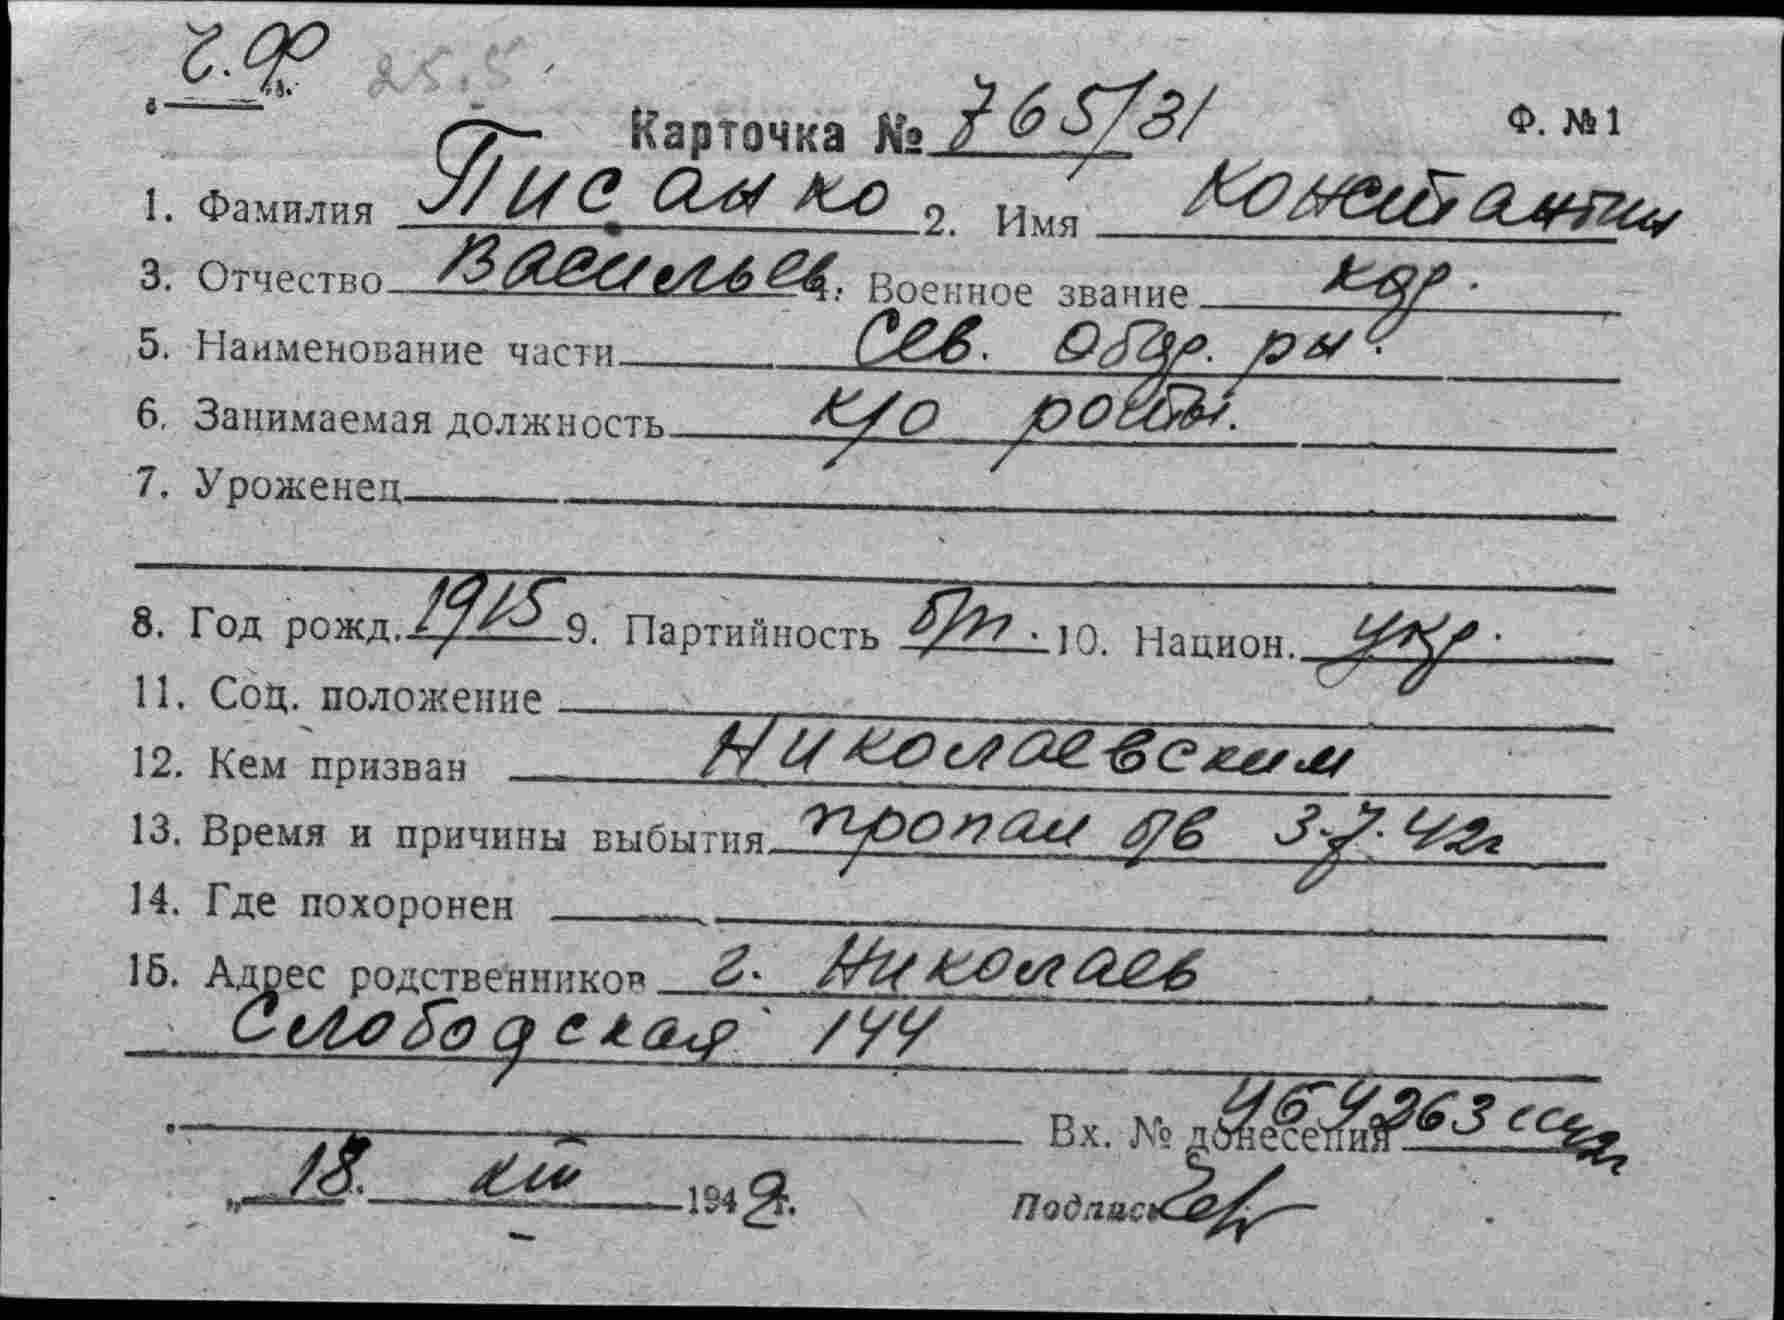 Ч.Ф 25.5
Карточка № 765/31 Ф. №1
1. Фамилия Писанко 2. Имя Константин
3. Отчество Васильев. Военное звание кдр.
5. Наименование части Сев. Обдр. рн.
6. Занимаемая должность к/о роты.
7. Уроженец
8. Год рожд. 1915 9. Партийность б/п. 10. Национ. Укр.
11. Соц. положение
12. Кем призван Николаевским
13. Время и причины выбытия пропал б/в 3.7.42г
14. Где похоронен
15. Адрес родственников г. Николаев
Слободская 144
Вх. № донесения
„ 18. 194 г. Подпись